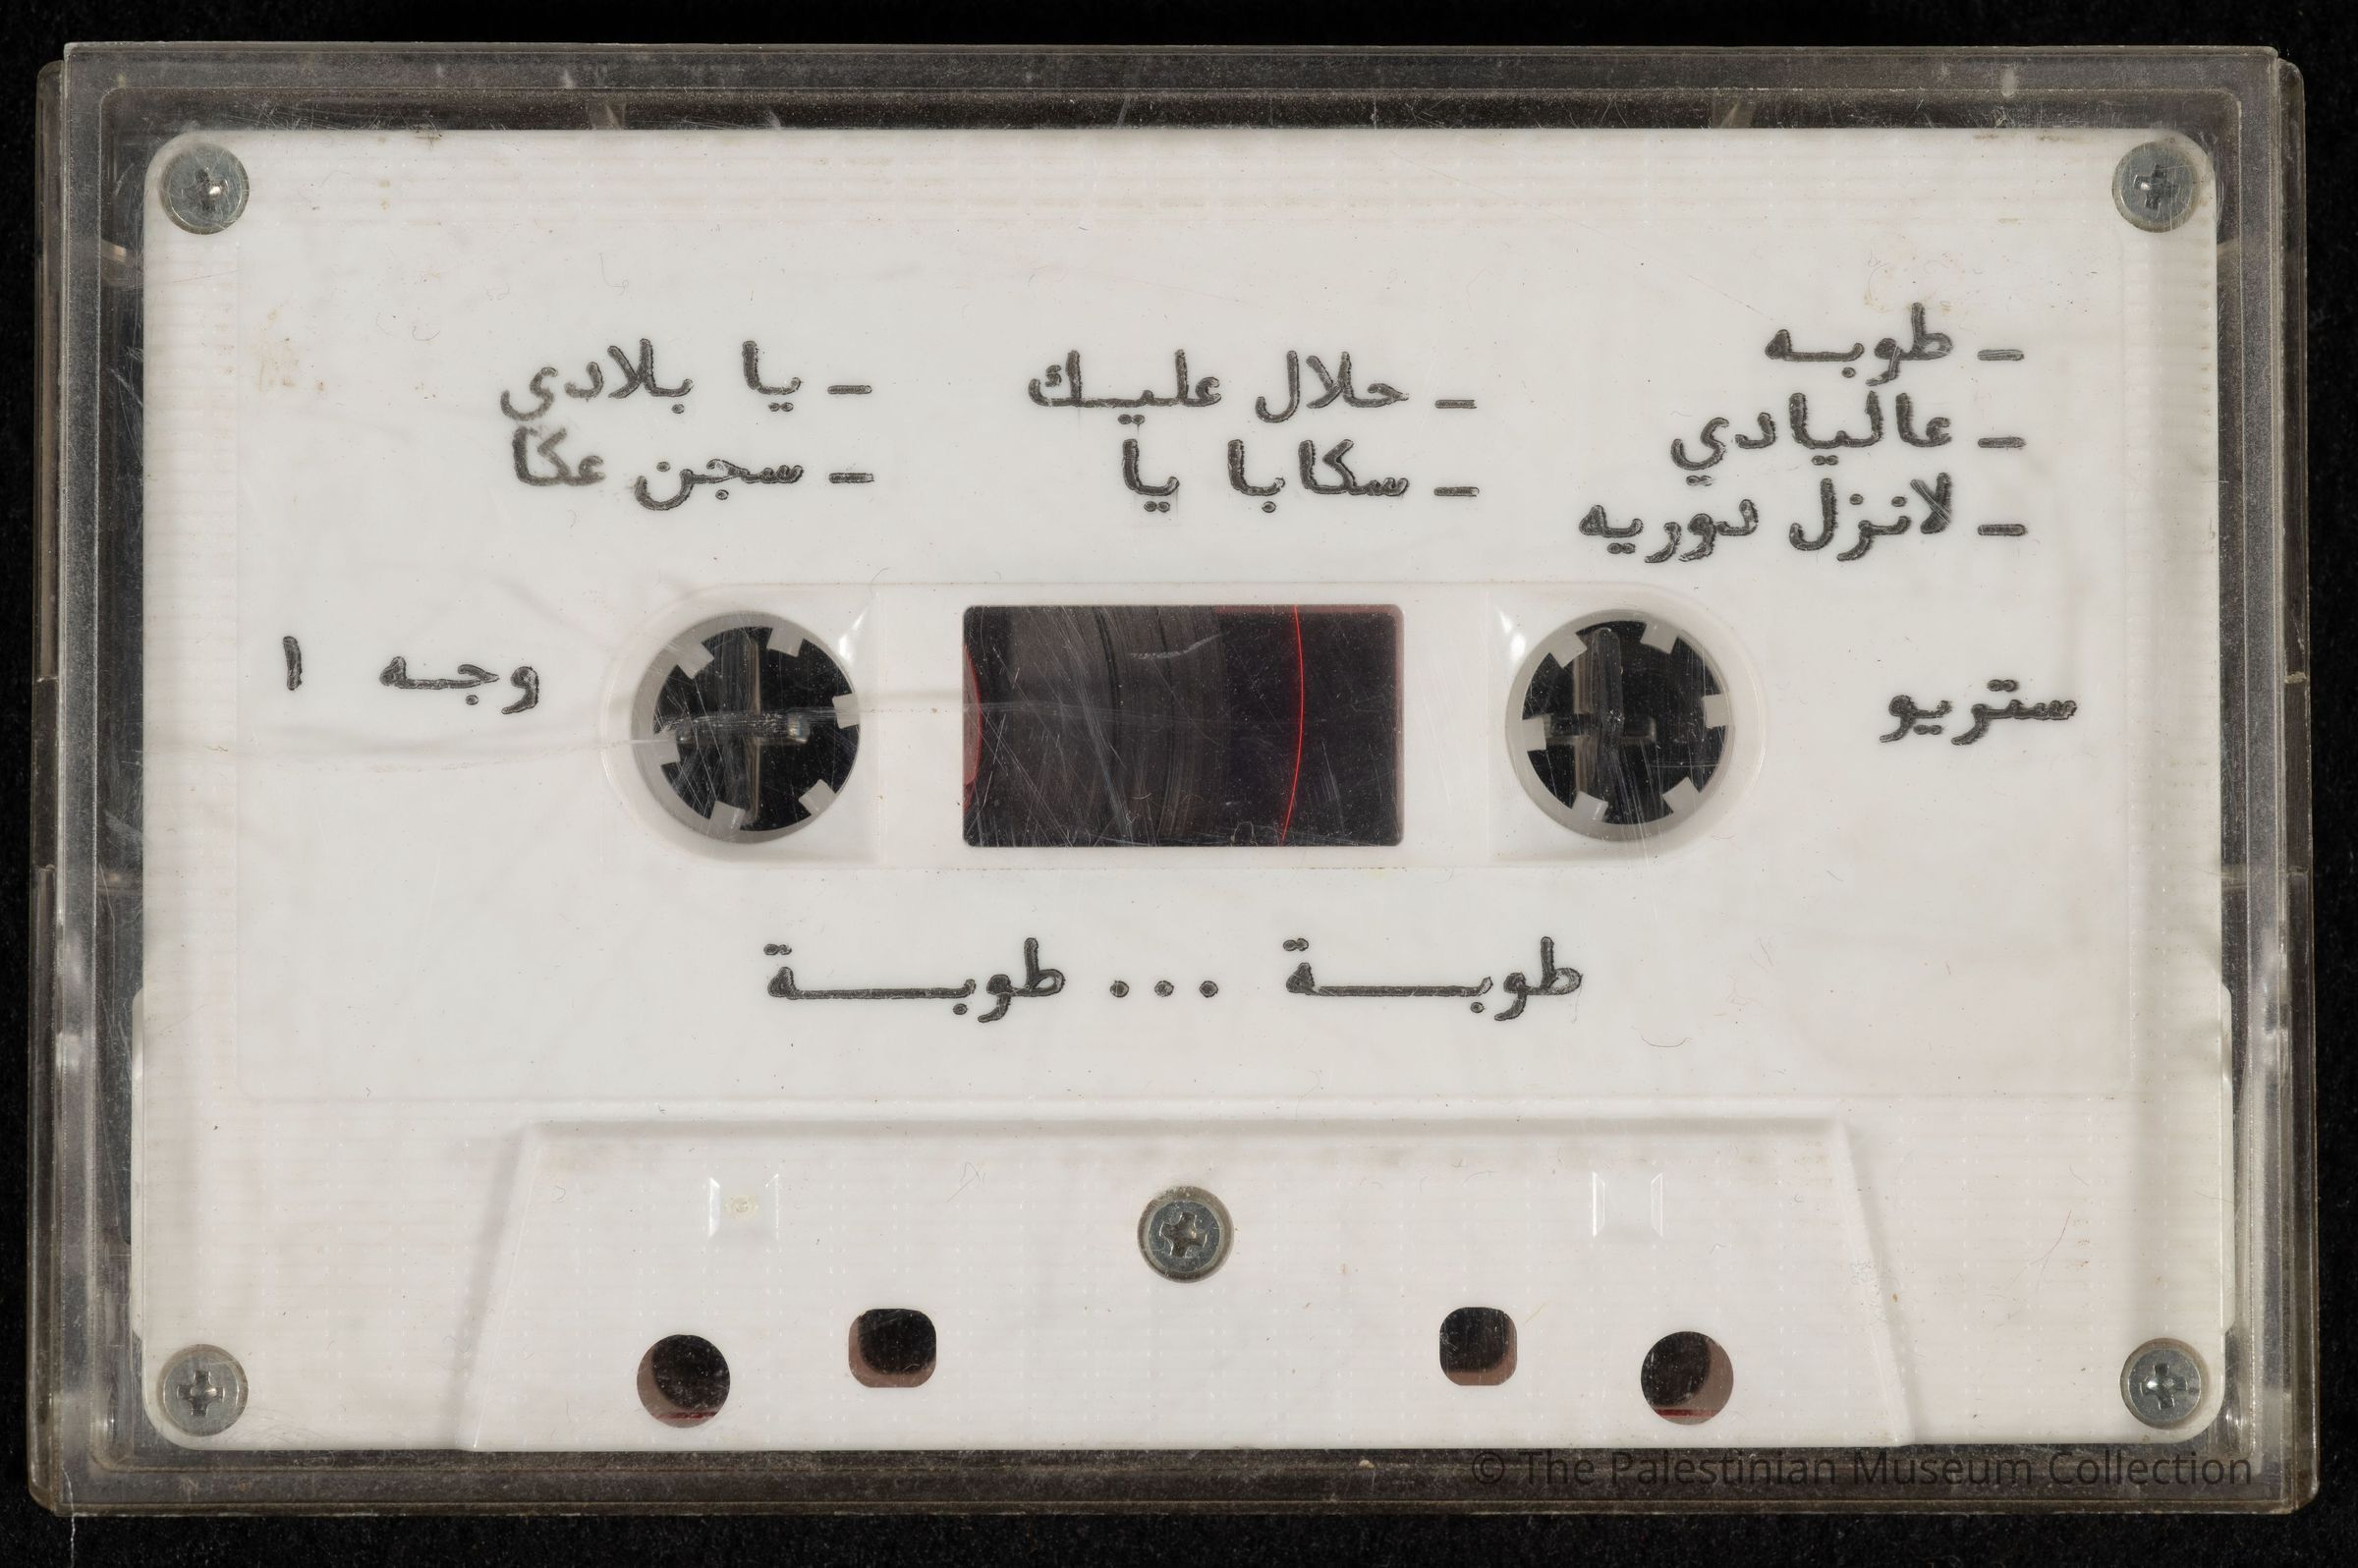 - طوبه
- عاليادي
- لانزل دوريه
- حلال عليك
- سكابا يا
- يا بلادي
- سجن عكا
ستريو
وجه ١
طوبة ... طوبة
© The Palestinian Museum Collection